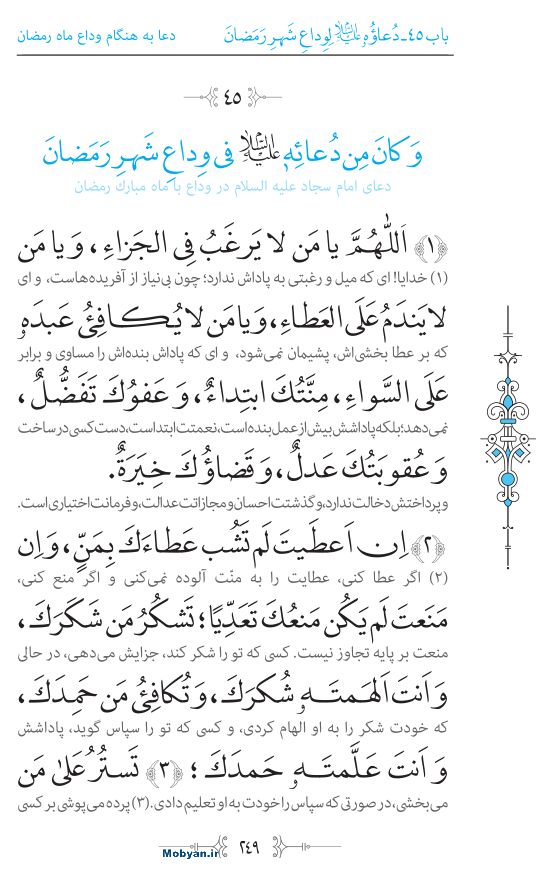 باب ٤٥-دُعاؤُهُ عليه‌السلام لِوِداعِ شَهرِ رَمَضانَ دعا به هنگام وداع ماه رمضان
٤٥
وَ كانَ مِن دُعائِهِ عليه‌السلام فى وِداعِ شَهرِ رَمَضانَ
دعای امام سجاد علیه السلام در وداع با ماه مبارک رمضان
﴿١﴾ اَللّٰهُمَّ يا مَن لا يَرغَبُ فِى الجَزاءِ، وَ يا مَن
(۱) خدایا! ای که میل و رغبتی به پاداش ندارد؛ چون بی‌نیاز از آفریده‌هاست، و ای
لا يَندَمُ عَلَى العَطاءِ، وَ يا مَن لا يُكافِئُ عَبدَهُ
که بر عطا بخشی‌اش، پشیمان نمی‌شود، و ای که پاداش بنده‌اش را مساوی و برابر
عَلَى السَّواءِ، مِنَّتُكَ ابتِداءٌ، وَ عَفوُكَ تَفَضُّلٌ،
نمی‌دهد؛ بلکه پاداشش بیش از عمل بنده است، نعمتت ابتدا است، دست کسی در ساخت
وَ عُقوبَتُكَ عَدلٌ، وَ قَضاؤُكَ خِيَرَةٌ.
و پرداختش دخالت ندارد، و گذشتت احسان و مجازاتت عدالت، و فرمانت اختیاری است.
﴿٢﴾ اِن اَعطَيتَ لَم تَشُب عَطاءَكَ بِمَنٍّ، وَ اِن
(۲) اگر عطا کنی، عطایت را به منّت آلوده نمی‌کنی و اگر منع کنی،
مَنَعتَ لَم يَكُن مَنعُكَ تَعَدِّيًا؛ تَشكُرُ مَن شَكَرَكَ،
منعت بر پایه تجاوز نیست. کسی که تو را شکر کند، جزایش می‌دهی، در حالی
وَ اَنتَ اَلهَمتَهُ شُكرَكَ، وَ تُكافِئُ مَن حَمِدَكَ،
که خودت شکر را به او الهام کردی، و کسی که تو را سپاس گوید، پاداشش
وَ اَنتَ عَلَّمتَهُ حَمدَكَ؛ ﴿٣﴾ تَستُرُ عَلىٰ مَن
می‌بخشی، در صورتی که سپاس را خودت به او تعلیم دادی. (۳) پرده می‌پوشی بر کسی
٢٤٩
Mobyan.ir